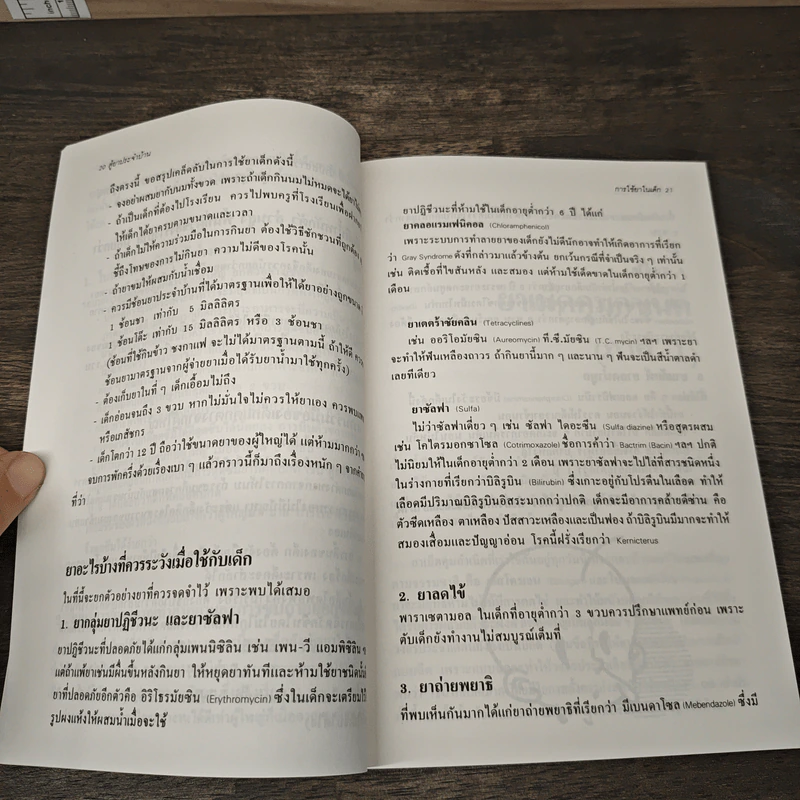 inch
20 คู่ยาประจำบ้าน
ถึงตรงนี้ ขอสรุปเคล็ดลับในการใช้ยาเด็กดังนี้
- จงอย่าผสมยากับนมทั้งขวด เพราะถ้าเด็กกินนมไม่หมดจะได้ยาไม่
- ถ้าเป็นเด็กที่ต้องไปโรงเรียน ควรไปพบครูที่โรงเรียนเพื่อฝาก
ให้เด็กได้ยาครบตามขนาดและเวลา
- ถ้าเด็กไม่ให้ความร่วมมือในการกินยา ต้องใช้วิธีชักชวนที่ถูกต้อง
ชี้ถึงโทษของการไม่กินยา ความไม่ดีของโรคนั้น
- ถ้ายาขมให้ผสมกับน้ำเชื่อม
- ควรมีช้อนยาประจำบ้านที่ได้มาตรฐานเพื่อให้ได้ยาอย่างถูกขนาด
1 ช้อนชา เท่ากับ 5 มิลลิลิตร
1 ช้อนโต๊ะ เท่ากับ 15 มิลลิลิตร หรือ 3 ช้อนชา
(ช้อนที่ใช้กินข้าว ชงกาแฟ จะไม่ได้มาตรฐานตามนี้ ถ้าให้ดี ควร
ช้อนยามาตรฐานจากผู้จ่ายยาเมื่อได้รับยาน้ำมาใช้ทุกครั้ง)
- ต้องเก็บยาในที่ ๆ เด็กเอื้อมไม่ถึง
- เด็กอ่อนจนถึง 3 ขวบ หากไม่มั่นใจไม่ควรให้ยาเอง ควรพบแพ
หรือเภสัชกร
- เด็กโตกว่า 12 ปี ถือว่าใช้ขนาดยาของผู้ใหญ่ได้ แต่ห้ามมากกว่า
จบการพักครึ่งด้วยเรื่องเบา ๆ แล้วคราวนี้ก็มาถึงเรื่องหนัก ๆ จาก
ที่ว่า
ยาอะไรบ้างที่ควรระวังเมื่อใช้กับเด็ก
ในที่นี้จะยกตัวอย่างยาที่ควรจดจำไว้ เพราะพบได้เสมอ
1. ยากลุ่มยาปฏิชีวนะ และยาซัลฟา
ยาปฏิชีวนะที่ปลอดภัยได้แก่กลุ่มเพนนิซิลิน เช่น เพน-วี แอมพิซิลิน ฯ
แต่ถ้าแพ้ยาเช่นมีผื่นขึ้นหลังกินยา ให้หยุดยาทันทีและห้ามใช้ยาชนิดนั้น
ยาที่ปลอดภัยอีกตัวคือ อิริโธรมัยซิน (Erythromycin) ซึ่งในเด็กจะเตรียมไว้
รูปผงแห้งให้ผสมน้ำเมื่อจะใช้
การใช้ยาในเด็ก 21
ยาปฏิชีวนะที่ห้ามใช้ในเด็กอายุต่ำกว่า 6 ปี ได้แก่
ยาคลอแรมเฟนิคอล (Chloramphenicol)
เพราะระบบการทำลายยาของเด็กยังไม่ดีนักอาจทำให้เกิดอาการที่เรียก
ว่า Gray Syndrome ดังที่กล่าวมาแล้วข้างต้น ยกเว้นกรณีที่จำเป็นจริง ๆ เท่านั้น
เช่น ติดเชื้อที่ไขสันหลัง และสมอง แต่ห้ามใช้เด็ดขาดในเด็กอายุต่ำกว่า 1
เดือน
ยาเตตร้าซัยคลิน (Tetracyclines)
เช่น ออริโอมัยซิน (Aureomycin) ที.ซี.มัยซิน (T.C. mycin) ฯลฯ เพราะยา
จะทำให้ฟันเหลืองถาวร ถ้ากินยานี้มาก ๆ และนาน ๆ ฟันจะเป็นสีน้ำตาลดำ
เลยทีเดียว
ยาซัลฟา (Sulfa)
ไม่ว่าซัลฟาเดี่ยว ๆ เช่น ซัลฟา ไดอะซีน (Sulfa diazine) หรือสูตรผสม
เช่น โคไตรมอกซาโซล (Cotrimoxazole) ชื่อการค้าว่า Bactrim (Bacin) ฯลฯ ปกติ
ไม่นิยมให้ในเด็กอายุต่ำกว่า 2 เดือน เพราะยาซัลฟาจะไปไล่ที่สารชนิดหนึ่ง
ในร่างกายที่เรียกว่าบิลิรูบิน (Bilirubin) ซึ่งเกาะอยู่กับโปรตีนในเลือด ทำให้
เลือดมีปริมาณบิลิรูบินอิสระมากกว่าปกติ เด็กจะมีอาการคล้ายดีซ่าน คือ
ตัวซีดเหลือง ตาเหลือง ปัสสาวะเหลืองและเป็นฟอง ถ้าบิลิรูบินมีมากจะทำให้
สมองเสื่อมและปัญญาอ่อน โรคนี้ฝรั่งเรียกว่า Kernicterus
2. ยาลดไข้
พาราเซตามอล ในเด็กที่อายุต่ำกว่า 3 ขวบควรปรึกษาแพทย์ก่อน เพราะ
ตับเด็กยังทำงานไม่สมบูรณ์เต็มที่
3. ยาถ่ายพยาธิ
ที่พบเห็นกันมากได้แก่ยาถ่ายพยาธิที่เรียกว่า มีเบนดาโซล (Mebendazole) ซึ่งมี